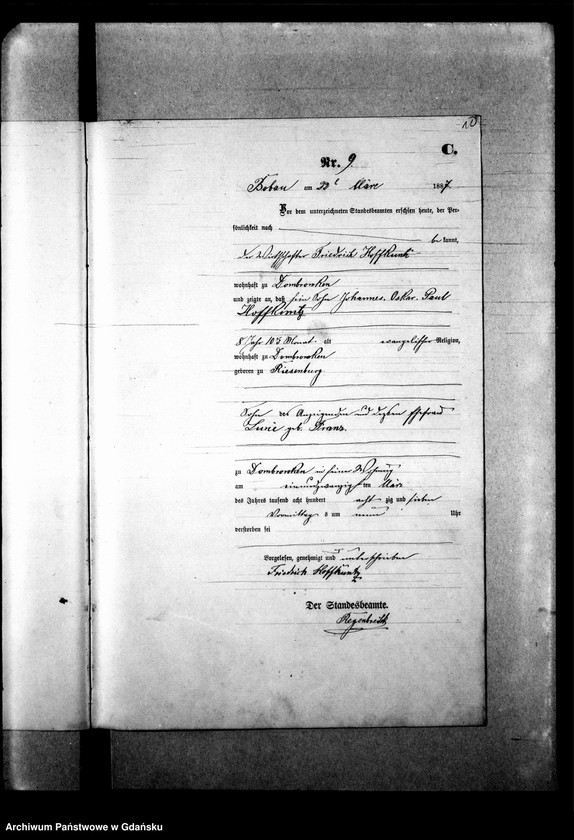 10
C.
Nr. 9.
Boban am 22t März 1887
Vor dem unterzeichneten Standesbeamten erschien heute, der Per-
sönlichkeit nach
be kannt,
der Wirthschafter Friedrich Hoffkuntz
wohnhaft zu Dombrowken
und zeigte an, daß sein Sohn Johannes Oskar Paul
Hoffkuntz
8 Jahr 10½ Monat alt evangelischer Religion,
wohnhaft zu Dombrowken
geboren zu Riesenburg
Sohn des Anzeigenden und dessen Ehefrau
geb.
zu Dombrowken in seiner Wohnung
am einundzwanzig ten März
des Jahres tausend acht hundert acht zig und sieben
Vormittag s um neun Uhr
verstorben sei
Vorgelesen, genehmigt und unterschrieben
Friedrich Hoffkuntz
Der Standesbeamte.
Regenbrecht
Archiwum Państwowe w Gdańsku